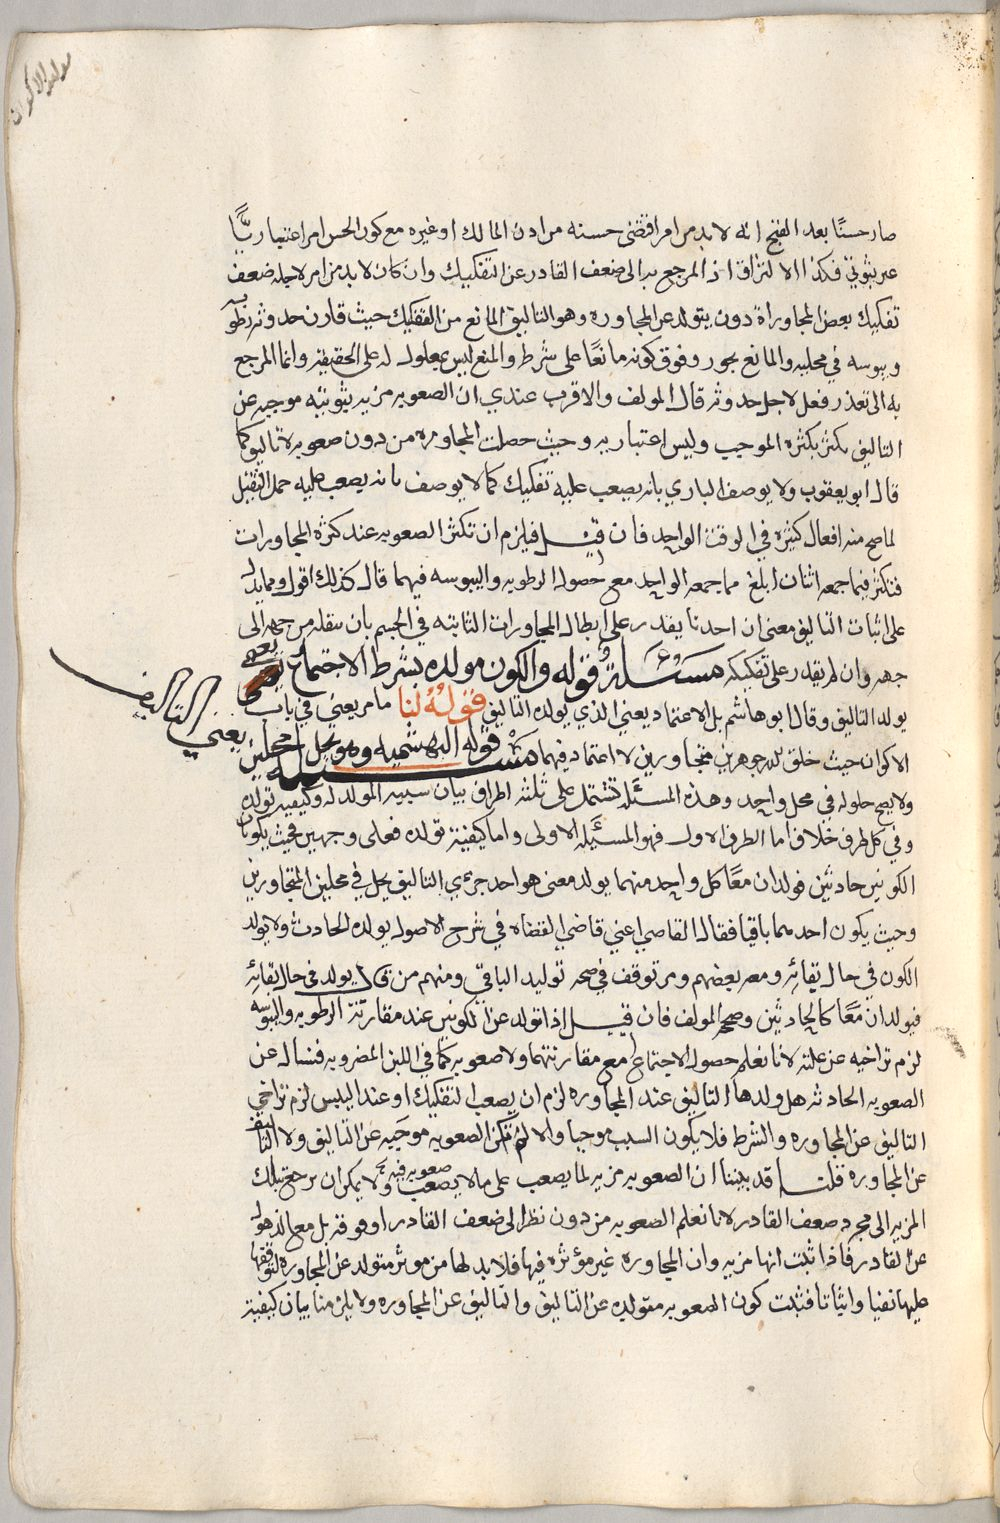 مولد الاكوان
صار حسنًا بعد القبح انه لا بد من امر اقتضى حسنه من اذن المالك او غيره مع كون الحسن امر اعتباريًّا
غير ثبوتي فكذا الالتزاق اذ المرجع به الى ضعف القادر عن التفكيك وان كان لا بد من امر لاجله ضعف
تفكيك بعض المجاوراة دون يتولد عن المجاوره وهو التاليف المانع من التفكيك حيث قارن حدوثه رطوبه
ويبوسه في محليه والمانع يجوز وقوف كونه مانعًا على شرط والمنع ليس بمعلول له على الحقيقه وانما المرجع
به الى تعذر فعل لاجل حدوثه قال المولف والاقرب عندي ان الصعوبه مزيه ثبوتيه موجبه عن
التاليف تكثر بكثرة الموجب وليس اعتباريه وحيث حصلت المجاوره من دون صعوبه لا تاليف كما
قال ابو يعقوب ولا يوصف الباري بانه يصعب عليه تفكيك كما لا يوصف بانه يصعب عليه حمل الثقيل
لما صح منه افعال كثيره في الوقت الواحد فان قيل فيلزم ان تكثر الصعوبه عند كثرة المجاورات
فتكثر فيما جمعه اثنان ابلغ مما جمعه الواحد مع حصول الرطوبه واليبوسه فيهما قال كذلك اقول ومما يدل
على اثبات التاليف معنى ان احدنا يقدر على ابطال المجاورات الثابته في الجسم بان ينقله من جهه الى
جهه وان لم يقدر على تفكيكه مسئلة قوله والكون مولده بشرط الاجتماع يعني
يولد التاليف وقال ابو هاشم بل الاعتماد يعني الذي يولده التاليف قوله لنا ما مر يعني في باب
يعني التاليف
الاكوان حيث خلق لله جوهرين متجاورين لا اعتماد فيهما مسئلة قوله البهشميه وهو يحل محلين
ولا يصح حلوله في محل واحد وهذه المسئله تشتمل على ثلثه اطراف بيان سببه المولد له وكيفيه تولده
وفي كل طرف خلاف اما الطرف الاول فهو المسئله الاولى واما كيفية تولده فعلى وجهين فحيث يكونان
الكونين حادثين فولدان معًا كل واحد منهما يولد معنى هو احد جزءي التاليف يحل في محلين المتجاورين
وحيث يكون احدهما باقيا فقال القاضي اعني قاضي القضاه في شرح الاصول يولده الحادث ولا يولد
الكون في حال بقائه ومعه بعضهم ومر توقف في صحه توليد الباقي ومنهم من قال يولد في حال بقائه
فيولدان معًا كالحادثين وصححه المولف فان قيل اذا تولد عن الكونين عند مقارنة الرطوبه واليبوسه
لزم تراخيه عن علته لانا نعلم حصول الاجتماع مع مقارنتهما ولا صعوبه كما في اللبن المضروبه فنسال عن
الصعوبه الحادثه هل ولدها التاليف عند المجاوره لزم ان يصعب التفكيك او عند اليبس لزم تراخي
التاليف عن المجاوره والشرط فلا يكون السبب موجبا والا لم تكن الصعوبه موجبه عن التاليف ولا التاليف
عن المجاوره قلنا قد بيننا ان الصعوبه مزيه لما يصعب على ما لا يصعب صعوبه فيه ولا يمكن ان يرجع بتلك
المزيه الى مجرد ضعف القادر لانا نعلم الصعوبه من دون نظر الى ضعف القادر او قوته بل مع الذهول
عن القادر فاذا ثبت انها مزيه وان المجاوره غير مؤثره فيها فلا بد لها من موثر متولد عن المجاوره لتوقفها
عليها نفيا واثباتا فثبت كون الصعوبه متولده عن التاليف والتاليف عن المجاوره ولا يلزمنا بيان كيفية